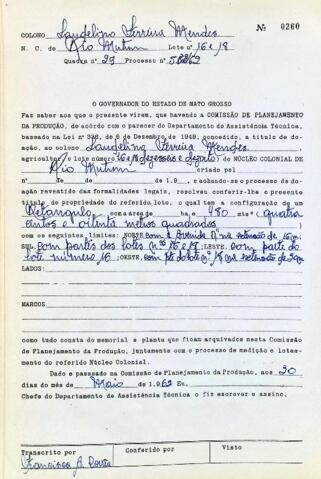 Nº 0260
COLONO Laudelino Ferreira Mendes
N. C. de Rio Mutum Lote nº 16 e 18
Quadra nº 29 Processo nº
O GOVERNADOR DO ESTADO DE MATO GROSSO
Faz saber aos que o presente virem, que havendo a COMISSÃO DE PLANEJAMENTO
DA PRODUÇÃO, de acordo com o parecer do Departamento de Assistência Técnica,
baseado na Lei nº 336, de 6 de Dezembro de 1949, concedido, a título de doa-
ção, ao colono Laudelino Ferreira Mendes
agricultor o lote número 16 e 18 (dezesseis e dezoito) do NÚCLEO COLONIAL DE
Rio Mutum criado pel
nº de de de 1.9 , e achando-se o processo de doa-
ção revestido das formalidades legais, resolveu conferir-lhe o presente
título de propriedade do referido lote, o qual tem a configuração de um
Retangulo com a área de ha, e 480 mts² ( quatro
centos e oitenta metros quadrados
com os seguintes limites: NORTE com a Avenida
SUL: com partes dos lotes nos 15 e 17: LESTE: com parte do
lote número 16: OESTE: com
LADOS:
MARCOS
como tudo consta do memorial e planta que ficam arquivados nesta Comissão
de Planejamento da Produção, juntamente com o processo de medição e lotea-
mento do referido Núcleo Colonial.
Dado e passado na Comissão de Planejamento da Produção, aos 20
dias do mês de Maio de 1.962 Eu,
Chefe do Departamento de Assistência Técnica o fiz escrever e assino.
Transcrito por
Conferido por
Visto
Francisca A.